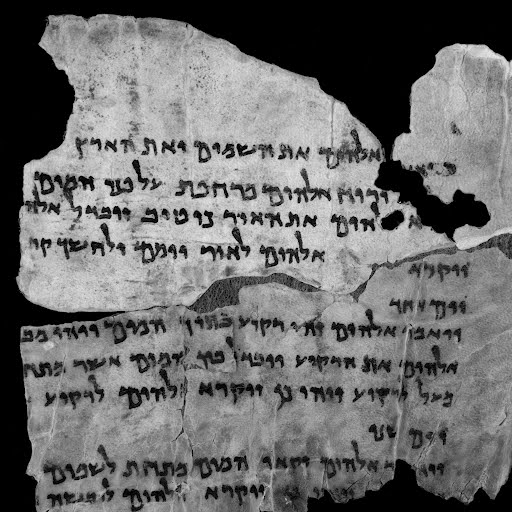 אלהים את השמים ואת הארץ
ורוח אלהים מרחפת על פני המים
אלהים את האור כי טוב ויבדל אלה
ויקרא אלהים לאור יומם ולחשך קר
יום אחד
ויאמר אלהים יהי רקיע בתוך המים ויהי מב
אלהים את הרקיע ויבדל בין המים אשר מתח
מעל לרקיע ויהי כן ויקרא אלהים לרקיע
יום שני
אלהים יקאו המים מתחת לשמים
ויקרא אלהים ליבשה